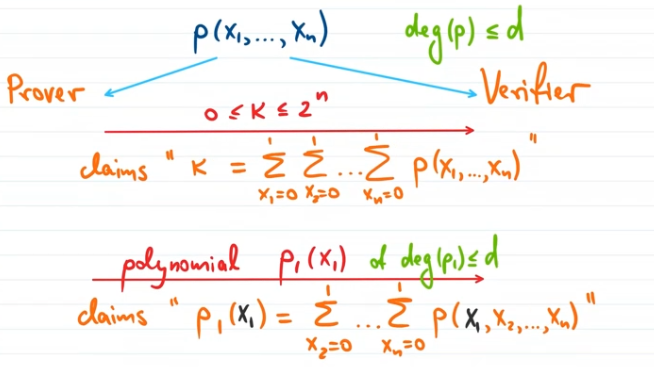 p(x₁,...,xₙ) deg(p) ≤ d
Prover Verifier
0 ≤ K ≤ 2ⁿ
claims " K = ∑_{x₁=0}^{1} ∑_{x₂=0}^{1} ... ∑_{xₙ=0}^{1} p(x₁,...,xₙ) "
polynomial p₁(x₁) of deg(p₁) ≤ d
claims " p₁(x₁) = ∑_{x₂=0}^{1} ... ∑_{xₙ=0}^{1} p(x₁,x₂,...,xₙ) "